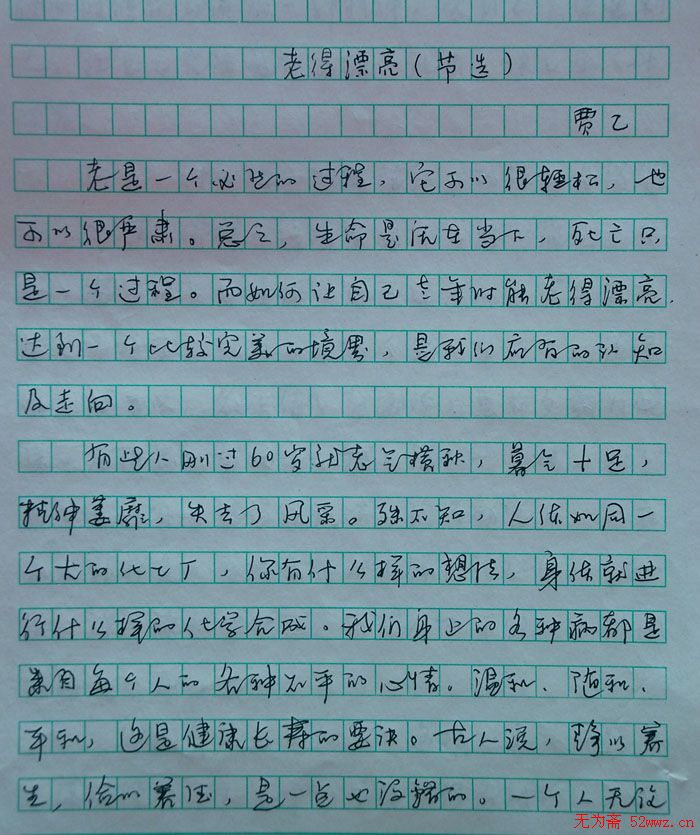 老得漂亮(节选)
贾乙
老是一个必然的过程，它可以很轻松，也
可以很严肃。总之，生命是活在当下，死亡只
是一个过程。而如何让自己老年时能老得漂亮，
达到一个比较完美的境界，是我们应有的认知
及走向。
有些人刚过60岁就老气横秋，暮气十足，
精神萎靡，失去了风采。殊不知，人体如同一
个大的化工厂，你有什么样的想法，身体就进
行什么样的化学合成。我们身上的各种病都是
来自每个人的各种不平的心情。温和、随和、
平和，这是健康长寿的要诀。古人说，静以养
生，俭以养德，是一点也没错的。一个人无论
无为斋 52wwz.cn